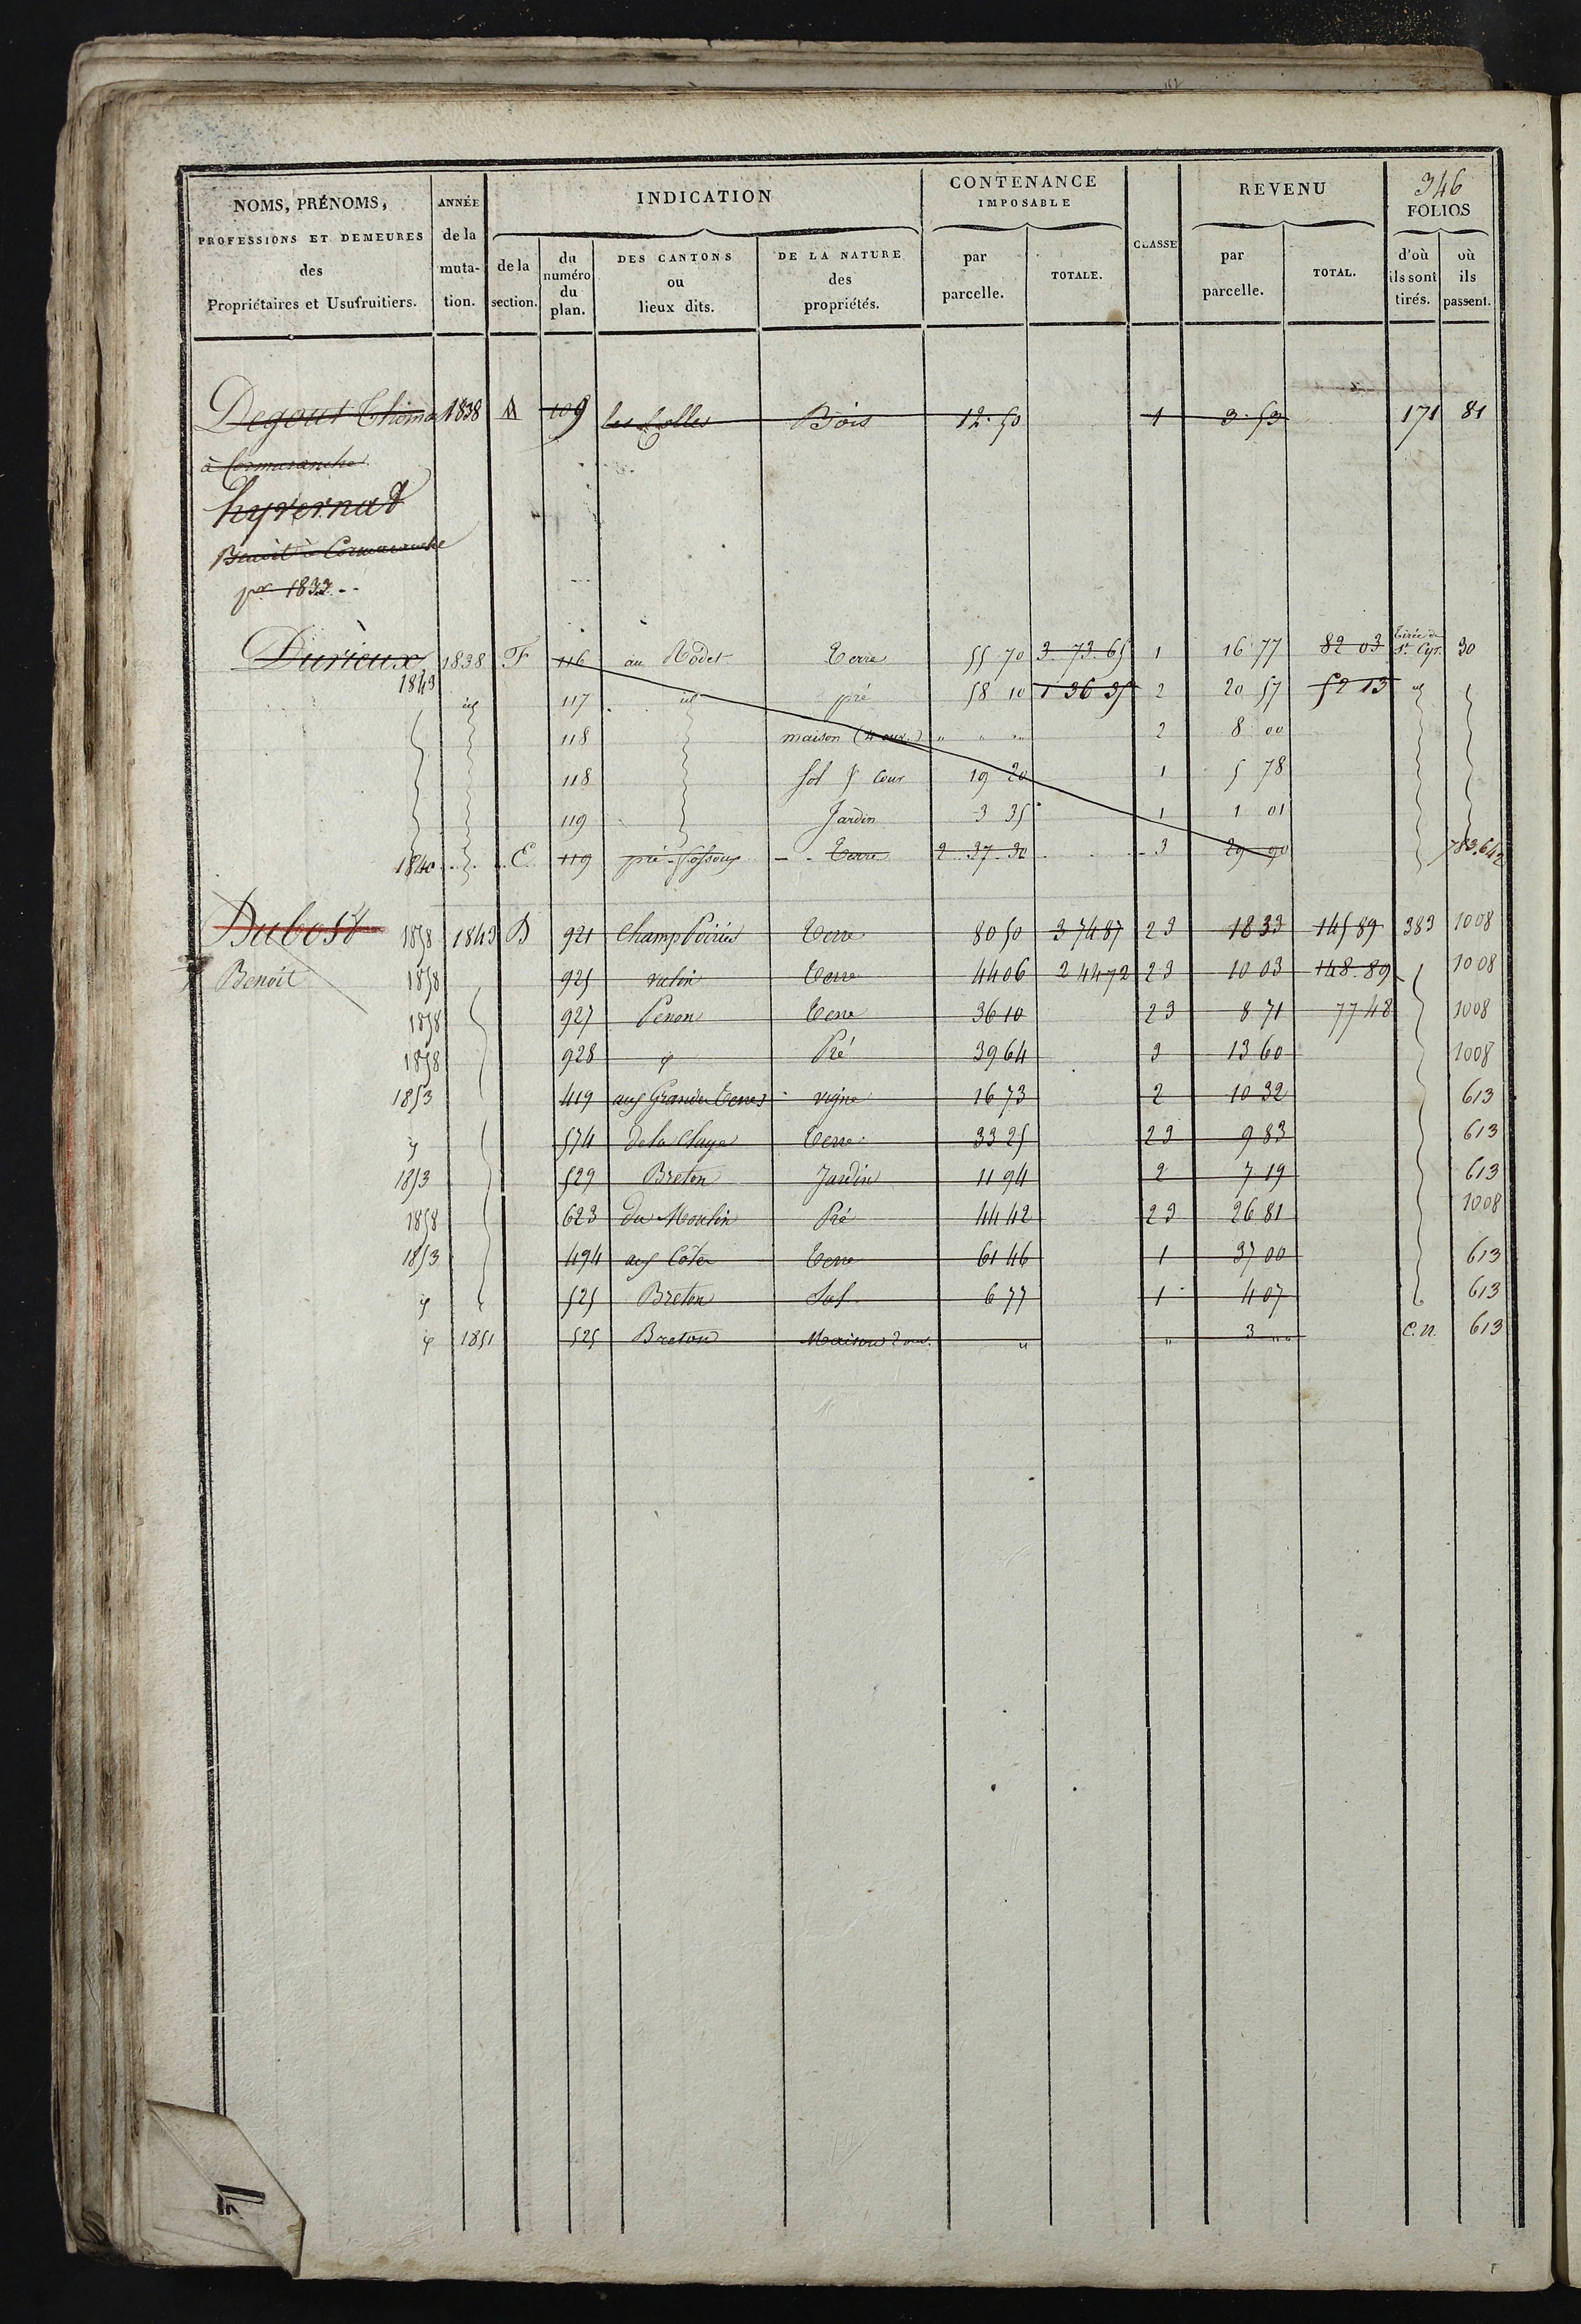 346
NOMS, PRÉNOMS, PROFESSIONS ET DEMEURES des Propriétaires et Usufruitiers.
ANNÉE de la mutation.
INDICATION
de la section.
du numéro du plan.
DES CANTONS ou lieux dits.
DE LA NATURE des propriétés.
CONTENANCE IMPOSABLE
par parcelle.
TOTALE.
CLASSE
REVENU
par parcelle.
TOTAL.
FOLIOS
d'où ils sont tirés.
où ils passent.
Degout Thomas 1838 109 les Bois 12.50 1 3.53 171 81
à Cormaranche
hyvernat
Benoit à Cormaranche
pr 1833
Durieux 1838 F 116 au Terre 55 70 3.73.65 1 16 77 82 03 Tirée de St. Cyr. 30
1843 id 117 id pré 58 10 1 36 35 2 20 57 52 13 id
118 maison " " " 2 8 00
118 Sol & Cour 19 20 1 5 78
119 Jardin 3 35 1 1 01
1840 E 119 pré Terre 2 37 30 3 29 90 783.642
Dubost 1858 1843 B 921 Champ Poirier Terre 80 50 3 74 87 23 18 33 145 89 383 1008
Benoit 1858 925 Terre 44 06 2 44 72 23 10 03 148.89 1008
1858 927 Penon Terre 36 10 23 8 71 77 48 1008
1858 928 Pré 39 64 3 13 60 1008
1853 419 aux Grandes Terres vigne 16 73 2 10 32 613
574 de la Terre 33 25 23 9 83 613
1853 529 Breton Jardin 11 94 2 7 19 613
1858 623 du Moulin Pré 44 42 23 26 81 1008
1853 494 aux Côtes Terre 61 46 1 37 00 613
525 Breton Sol 6 77 1 4 07 613
1851 525 Breton Maison 2 ouv. " " 3 " C.N. 613